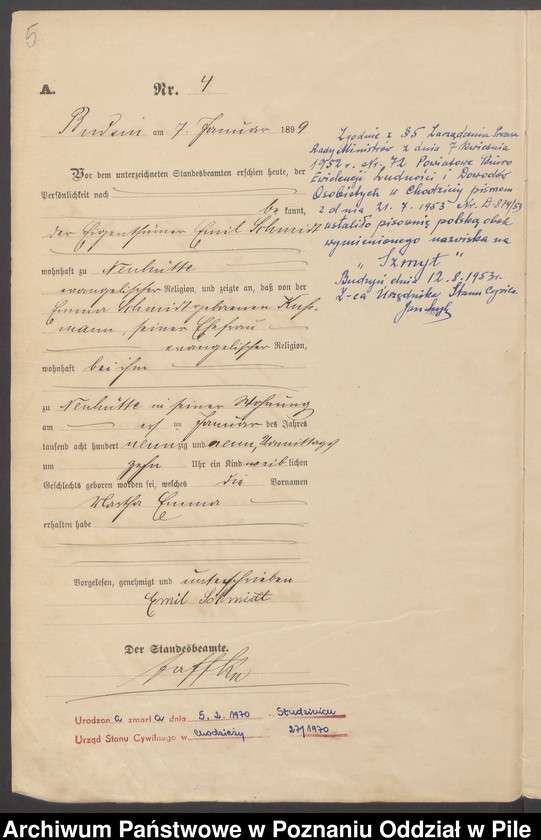 5
A. Nr. 4
Budsin am 7. Januar 1899
Vor dem unterzeichneten Standesbeamten erschien heute, der
Persönlichkeit nach
bekannt,
der Eigenthümer Emil Schmidt
wohnhaft zu Neuhütte
evangelischer Religion, und zeigte an, daß von der
Emma Schmidt geborenen
mann, seiner Ehefrau
evangelischer Religion,
wohnhaft bei ihm
zu Neuhütte in seiner Wohnung
am Januar des Jahres
tausend acht hundert neunzig und neun, Vormittags
um zehn Uhr ein Kind weiblichen
Geschlechts geboren worden sei, welches die Vornamen
Martha Emma
erhalten habe
Vorgelesen, genehmigt und unterschrieben
Emil Schmidt
Der Standesbeamte.
Zgodnie z § 5 Zarządzenia Prezesa
Rady Ministrów z dnia 7 kwietnia
1952 r. Nr. 72 Powiatowe Biuro
Ewidencji Ludności i Dowodów
Osobistych w Chodzieży pismem
z dnia 21.7.1953 Nr.
ustaliło pisownię polską obok
wymienionego nazwiska na
"Szmyt"
Budzyń dnia 12.8.1953 r.
Z-ca Urzędnika Stanu Cywiln.
Urodzona zmarła dnia 5.2.1970 Studzieniec
Urząd Stanu Cywilnego w Chodzieży 27/1970
Archiwum Państwowe w Poznaniu Oddział w Pile